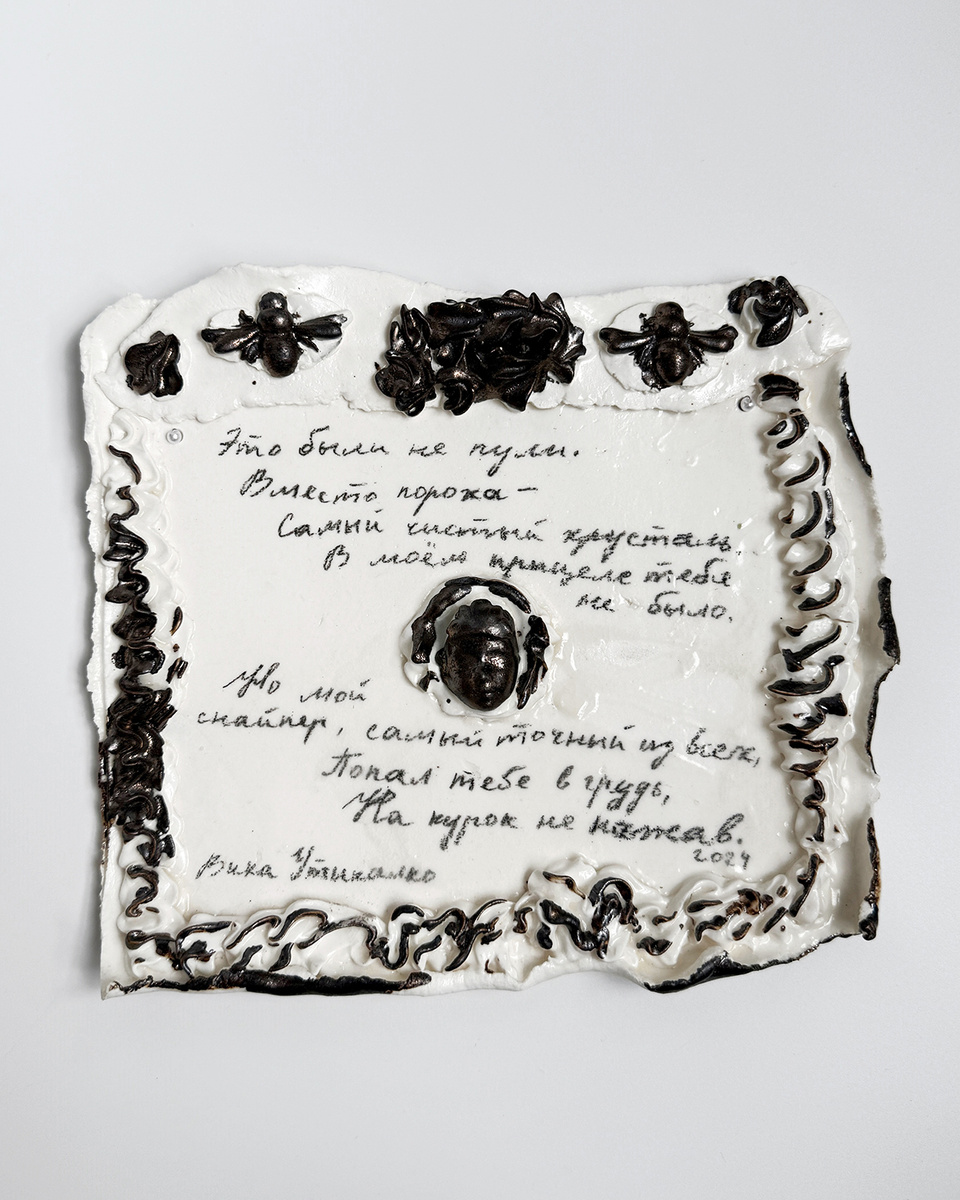 Это были не пули.
Вместо пороха –
Самый чистый хрусталь.
В моём прицеле тебя
не было.
Но мой
снайпер, самый точный из всех,
Попал тебе в грудь,
На курок не нажав.
2024
Вика Утикалко